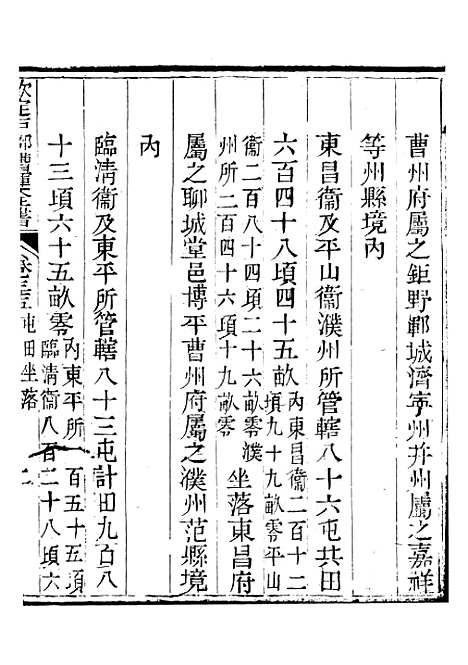 曹州府屬之鉅野鄆城濟寧州幷州屬之嘉祥
等州縣境內
東昌衞及平山衞濮州所管轄八十六屯共田
六百四十八頃四十五畝內東昌衞二百十二
頃九十九畝零平山
衞二百八十四頃二十六畝零濮
州所二百四十六頃十九畝零坐落東昌府
屬之聊城堂邑博平曹州府屬之濮州范縣境
內
臨清衞及東平所管轄八十三屯計田九百八
十三頃六十五畝零內東平所一百五十五頃
臨清衞八百二十八頃六
欽定戶部漕運全書 卷三十五 屯田坐落 二